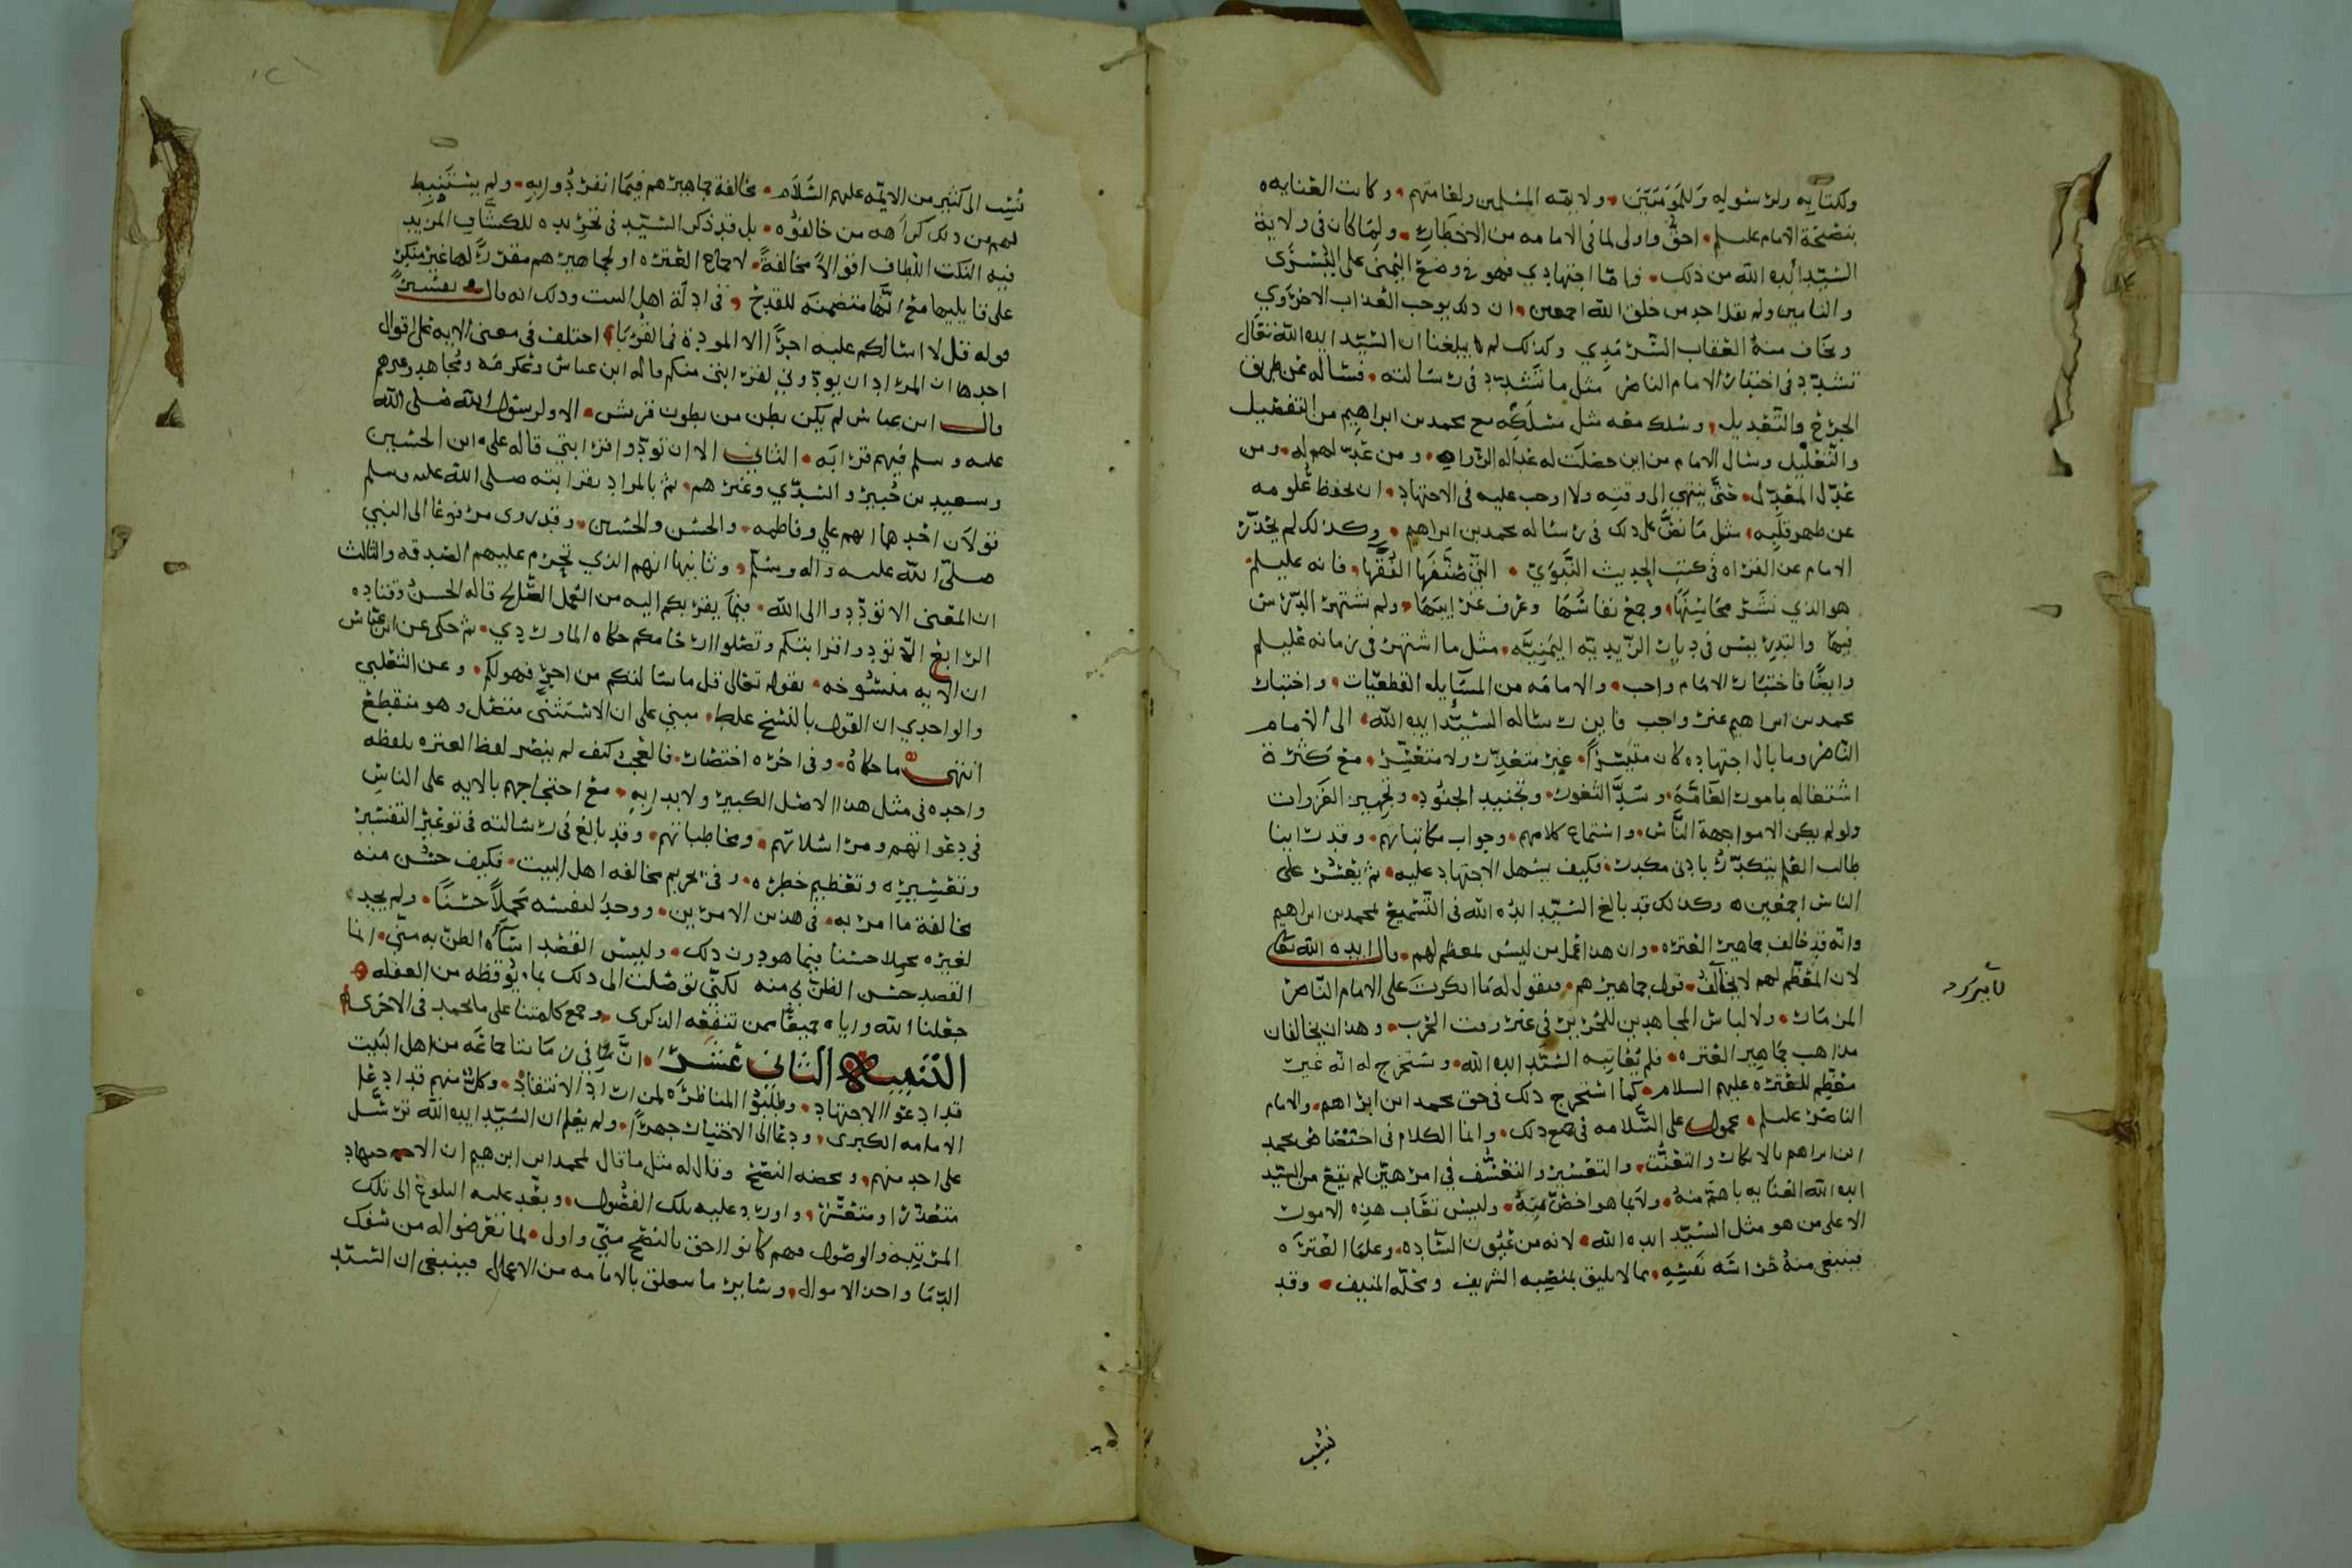 ولكتابه ولرسوله وللمؤمنين ولايمة المسلمين ولعامتهم وكانت العنايه
بنصيحة الامام عليلم احق واولى لما في الامامه من الاخطار ولما كان في ولاية
السيد ايده الله من ذلك واما اجتهادي فهو في وضع اليمنى على اليسرى
والتامين ولم يقل احد من خلق الله اجمعين ان ذلك يوجب العذاب الاخروي
ويخاف منه العقاب السرمدي وكذلك لم يبلغنا ان السيد ايده الله تعالى
تشدد في اختبار الامام الناصر مثل ما تشدد في رسالته فساله عن طريق
الجرح والتعديل وسلك معه مثل مسلكه مع محمد بن ابراهيم من التفصيل
والتعليل وسال الامام من اين حصلت له عداله الرواه ومن عدلهم له ومن
عدل المعدل حتى ينتهي الى وقته ولا اوجب عليه في الاجتهاد ان يحفظ علومه
عن ظهر قلبه مثل ما نص على ذلك في رساله محمد بن ابراهيم وكذلك لم يحذر
الامام عن القراه في كتب الحديث النبوي التي صنفها الفقها فانه عليلم
هو الذي نشر محاسنها وجمع نفاسها وعرف غرايبها ولم تشتهر الدرس
فيها والتدريس في ديار الزيديه اليمنيه مثل ما اشتهر في زمانه عليلم
وايضا فاختبار الامام واجب والامامه من المسايل القطعيات واختبار
محمد بن ابراهيم غير واجب فاين رساله السيد ايده الله الى الامام
الناصر وما بال اجتهاده كان متيسرا غير متعذر ولا متعسر مع كثرة
اشتغاله بامور العامه وسد الثغور وتجنيد الجنود وتجهيز الغزوات
ولو لم يكن الا مواجهة الناس واستماع كلامهم وجواب مكاتباتهم وقد راينا
طالب العلم يتكدر بادنى مكدر فكيف يسهل الاجتهاد عليه ثم يعسر على
الناس اجمعين وكذلك قد بالغ السيد ايده الله في التشنيع لمحمد بن ابراهيم
وانه قد خالف جماهير العتره وان هذا عمل من ليس لمعظم لهم قال ايده الله تعالى
لان المعظم لهم لا يخالف قول جماهيرهم فنقول له ما انكرت على الامام الناصر
المزمار ولا لباس المجاهدين للحرير في غير وقت الحرب وهذان يخالفان
مذاهب جماهير العتره فلم تعاتبه السيد ايده الله وتستخرج له انه غير
معظم للعتره عليهم السلام كما استخرج ذلك في حق محمد ابن ابراهيم والامام
الناصر عليلم محمول على السلامه في جميع ذلك وانما الكلام في اختصاص محمد
ابن ابراهيم بالانكار والتعنت والتعسير والتعسف في امر هين لم يقع من السيد
ايده الله العنايه باهم منه ولا بما هو اخص منه وليس تعاب هذه الامور
الا على من هو مثل السيد ايده الله لانه من عيون الساده وعلما العتره
فينبغي منه حراسه نفسه بما لا يليق بمنصبه الشريف ومحله المنيف وقد
نسب
نسب الى كثير من الايمه عليهم السلام مخالفة جماهيرهم فيما انفردوا به ولم يستنبط
لهم من ذلك كراهه من خالفوه بل قد ذكر السيد في تجريده للكشاف المزيد
فيه النكت اللطاف اقوالا مخالفة لاجماع العتره او لجماهيرهم مقررا لها غير منكر
على قايليها مع انها متضمنه للقدح في ادلة اهل البيت وذلك انه قال في تفسير
قوله قل لا اسالكم عليه اجرا الا المودة في القربا اختلف في معنى الايه على اقوال
احدها ان المراد ان يودوني لقرابتي منكم قاله ابن عباس وعكرمه ومجاهد وغيرهم
قال ابن عباس لم يكن بطن من بطون قريش الا ولرسول الله صلى الله
عليه وسلم فيهم قرابه الثاني الا ان تودوا قرابتي قاله علي ابن الحسين
وسعيد بن جبير والسدي وغيرهم ثم بالمراد بقرابته صلى الله عليه وسلم
قولان احدهما انهم علي وفاطمه والحسن والحسين وقد روى مرفوعا الى النبي
صلى الله عليه واله وسلم وثانيها انهم الذي تحرم عليهم الصدقه والثالث
ان المعنى الا توددوا الى الله فيما يقربكم اليه من العمل الصالح قاله الحسن وقتاده
الرابع الا تودوا قرابتكم وتصلوا ارحامكم حكاه الماوردي ثم حكى عن ابن عباس
ان الايه منسوخه بقوله تعالى قل ما سالتكم من اجر فهو لكم وعن الثعلبي
والواحدي ان القول بالنسخ غلط مبني على ان الاستثنى متصل وهو منقطع
انتهى ما حكاه وفي اخره اختصار فالعجب كيف لم ينصر لفظ العتره بلفظه
واحده في مثل هذا الاصل الكبير ولا بدا به مع احتجاجهم بالايه على الناس
في دعواتهم ومراسلاتهم ومخاطباتهم وقد بالغ في رسالته في توعير التفسير
وتعسيره وتعظيم خطره وفي تحريم مخالفه اهل البيت فكيف حسن منه
مخالفة ما امر به في هذين الامرين ووجد لنفسه محملا حسنا ولم يجد
لغيره محملا حسنا فيما هو دون ذلك وليس القصد اساه الظن به مني انما
القصد حسن الظن لي منه لكني توصلت الى ذلك بما يوقظه من الغفله
جعلنا الله واياه جميعا ممن تنفعه الذكرى وجمع كلمتنا على ما يحمد في الاخرى
التنبيه الثاني عشر ان في زماننا جماعه من اهل البيت
قد ادعوا الاجتهاد وطلبوا المناظره لمن اراد الانتقاد وكل منهم قد ادعا
الامامه الكبرى ودعا الى الاختبار جهرا ولم يعلم ان السيد ايده الله ترسل
على احد منهم ومحضه النصح وقال له مثل ما قال لمحمد ابن ابراهيم ان الاجتهاد
متعذر او متعسر واورد عليه تلك الفصول وبعد عليه البلوغ الى تلك
المرتبه والوصول فهم كانوا احق بالنصح مني واولى لما تعرضوا له من سفك
الدما واخذ الاموال وساير ما يتعلق بالامامه من الاعمال فينبغي ان السيد